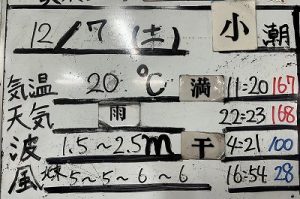 12/7(土) 小潮
気温 20℃ 満 11:20 167
天気 雨 22:23 168
波 1.5~2.5m 干 4:21 100
風 北東 5~5~6~6 16:54 28